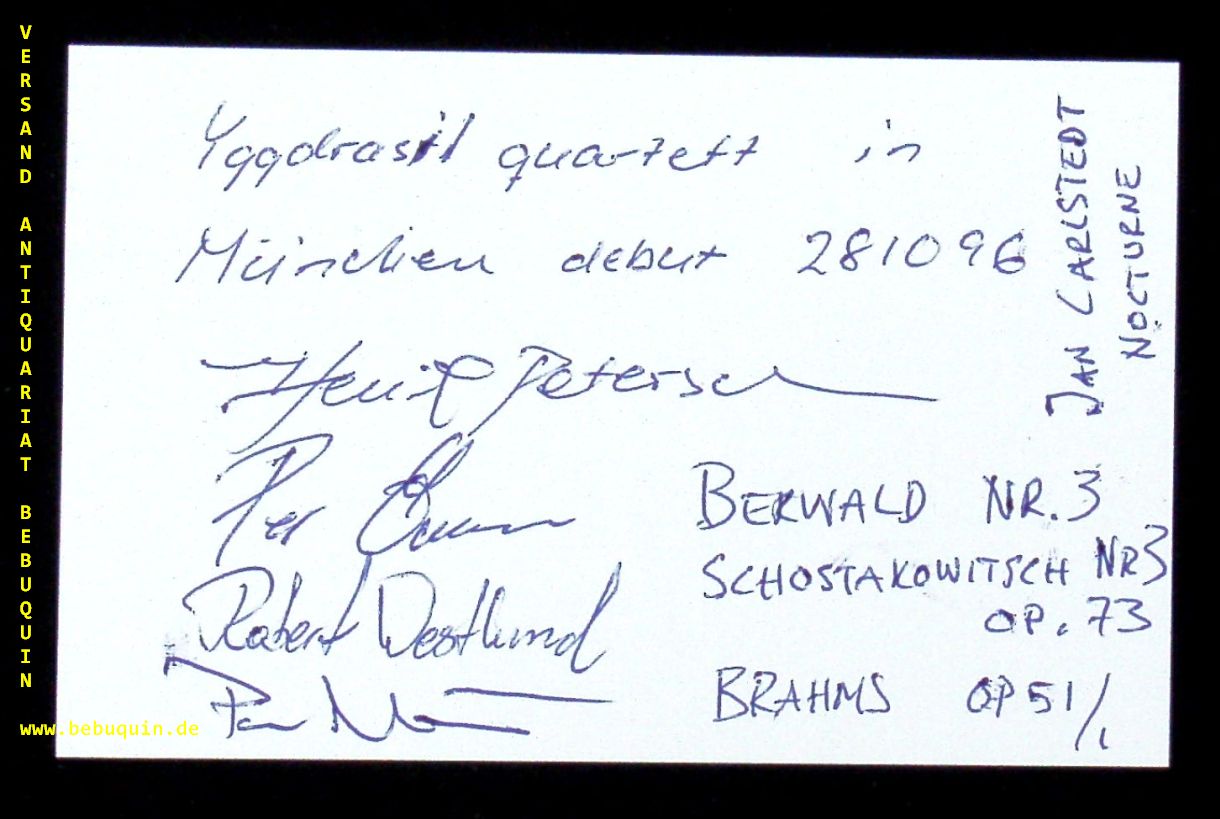 VERSAND ANTIQUARIAT BEBUQUIN
www.bebuquin.de
Yggdrasil quartett in
München debut 281096
Henrik Peterson
Per Öman
Robert Westlund
Per N
JAN CARLSTEDT
NOCTURNE
BERWALD NR.3
SCHOSTAKOWITSCH NR3
OP. 73
BRAHMS OP 51/1